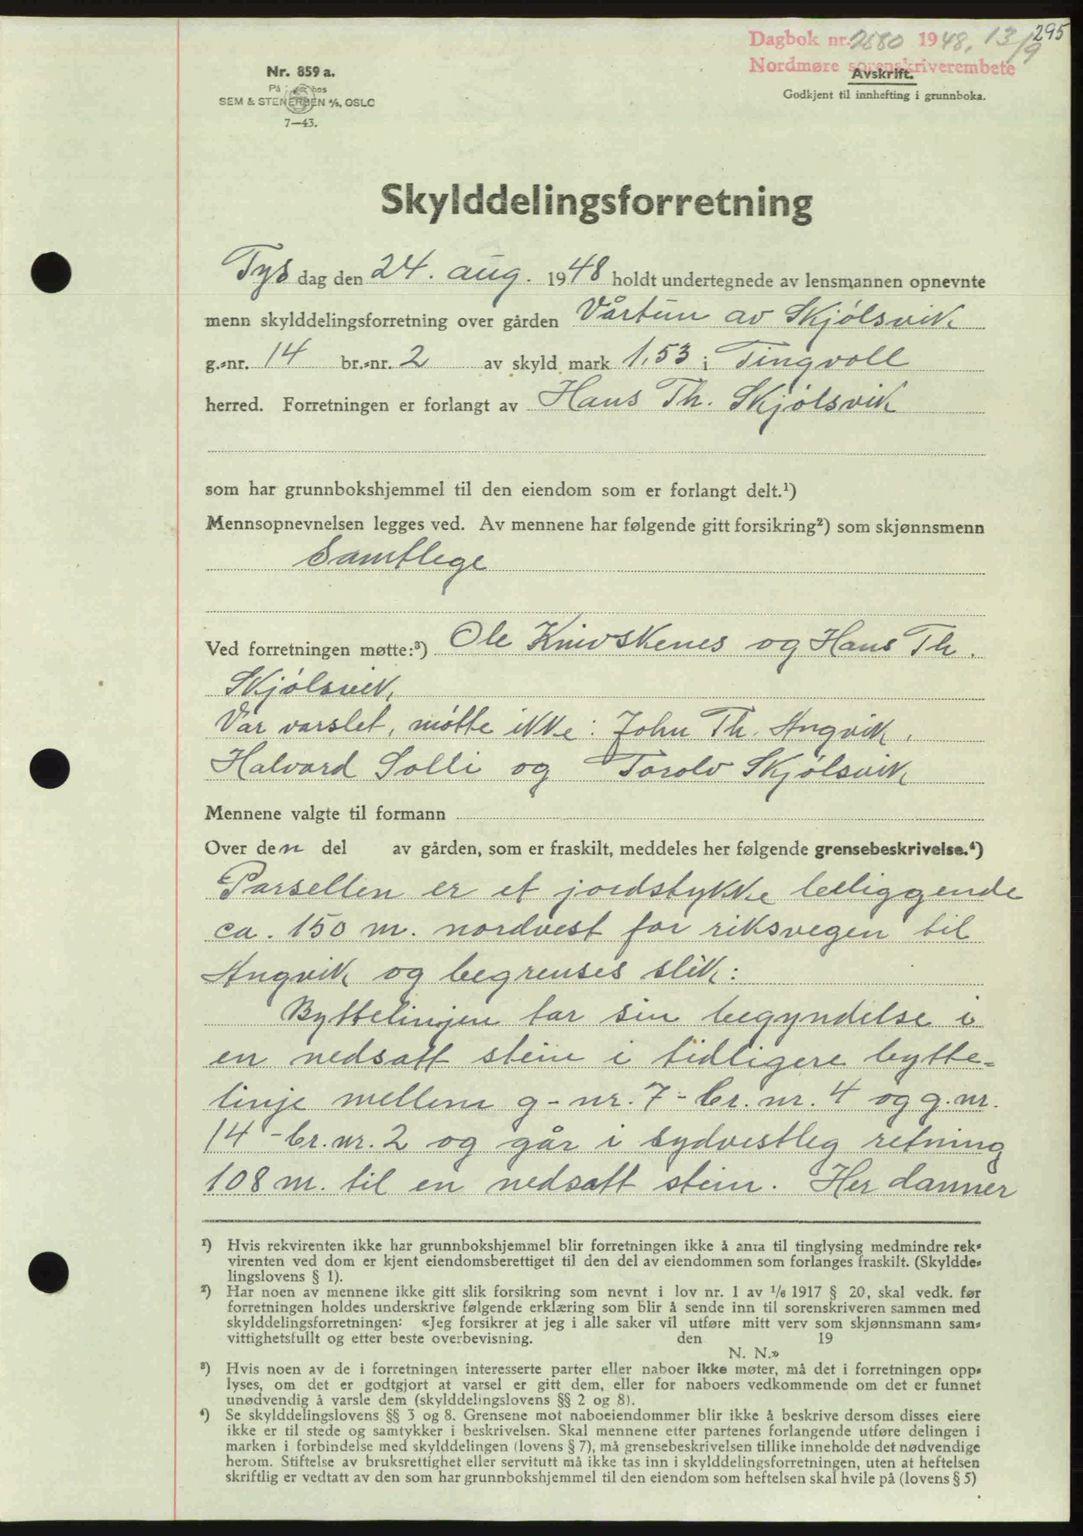 295
Dagbok nr. 2680 1948. 13/9
Nordmøre sorenskriverembete
Nr. 859 a.
SEM & STENERSEN A/S, OSLO
7—43.
Avskrift.
Godkjent til innhefting i grunnboka.
Skylddelingsforretning
Tysdag den 24. aug. 1948 holdt undertegnede av lensmannen opnevnte
menn skylddelingsforretning over gården Vårtun av Skjølsvik
g.-nr. 14 br.-nr. 2 av skyld mark 1,53 i Tingvoll
herred. Forretningen er forlangt av Hans Th. Skjølsvik
som har grunnbokshjemmel til den eiendom som er forlangt delt.¹)
Mennsopnevnelsen legges ved. Av mennene har følgende gitt forsikring²) som skjønnsmenn
Samtlege
Ved forretningen møtte:³) Ole Knivskenes og Hans Th.
Skjølsvik.
Var varslet, møtte ikke: John Th. Angvik,
Halvard Solli og Torolv Skjølsvik
Mennene valgte til formann
Over den del av gården, som er fraskilt, meddeles her følgende grensebeskrivelse.⁴)
Parsellen er et jordstykke beliggende
ca. 150 m. nordvest for riksvegen til
Angvik og begrenses slik:
Byttelinjen tar sin begyndelse i
en nedsatt stein i tidligere bytte-
linje mellem g-nr. 7 - br.nr. 4 og g.nr.
14 - br.nr. 2 og går i sydvestleg retning
108 m. til en nedsatt stein. Her danner
¹) Hvis rekvirenten ikke har grunnbokshjemmel blir forretningen ikke å anta til tinglysing medmindre rek-
virenten ved dom er kjent eiendomsberettiget til den del av eiendommen som forlanges fraskilt. (Skyldde-
lingslovens § 1).
²) Har noen av mennene ikke gitt slik forsikring som nevnt i lov nr. 1 av 1/6 1917 § 20, skal vedk. før
forretningen holdes underskrive følgende erklæring som blir å sende inn til sorenskriveren sammen med
skylddelingsforretningen: «Jeg forsikrer at jeg i alle saker vil utføre mitt verv som skjønnsmann sam-
vittighetsfullt og etter beste overbevisning. den 19
N. N.»
³) Hvis noen av de i forretningen interesserte parter eller naboer ikke møter, må det i forretningen opp-
lyses, om det er godtgjort at varsel er gitt dem, eller for naboers vedkommende om det er funnet
unødvendig å varsle dem (skylddelingslovens §§ 2 og 8).
⁴) Se skylddelingslovens §§ 3 og 8. Grensene mot naboeiendommer blir ikke å beskrive dersom disses eiere
ikke er til stede og samtykker i beskrivelsen. Skal mennene etter partenes forlangende utføre delingen i
marken i forbindelse med skylddelingen (lovens § 7), må grensebeskrivelsen tillike inneholde det nødvendige
herom. Stiftelse av bruksrettighet eller servitutt må ikke tas inn i skylddelingsforretningen, uten at heftelsen
skriftlig er vedtatt av den som har grunnbokshjemmel til den eiendom som heftelsen skal hvile på (lovens § 5)